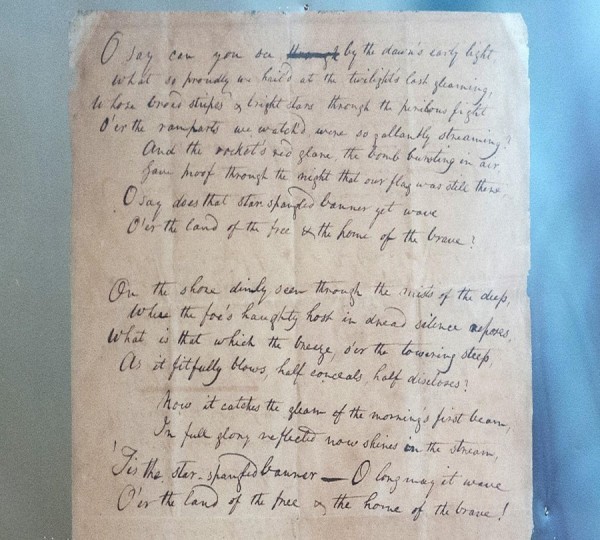 O say can you see, through by the dawn's early light,
What so proudly we hail'd at the twilight's last gleaming,
Whose broad stripes & bright stars through the perilous fight
O'er the ramparts we watch'd, were so gallantly streaming?
And the rocket's red glare, the bomb bursting in air,
Gave proof through the night that our flag was still there
O say does that star-spangled banner yet wave
O'er the land of the free & the home of the brave?
On the shore dimly seen through the mists of the deep,
Where the foe's haughty host in dread silence reposes,
What is that which the breeze, o'er the towering steep,
As it fitfully blows, half conceals, half discloses?
Now it catches the gleam of the morning's first beam,
In full glory reflected now shines in the stream,
'Tis the star-spangled banner — O long may it wave
O'er the land of the free & the home of the brave!